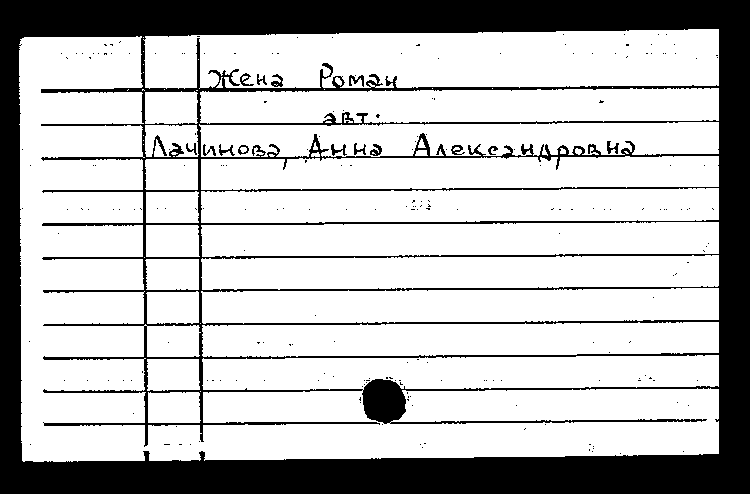 Жена Роман
авт.
Лачинова, Анна Александровна